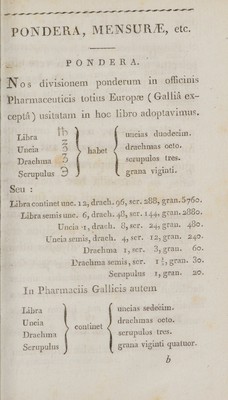 PONDERA, MENSURÆ, etc.
PONDERA.
Nos divisionem ponderum in officinis
Pharmaceuticis totius Europæ (Galliâ ex-
ceptâ) usitatam in hoc libro adoptavimus.
Libra ℔ uncias duodecim.
Uncia ℥ habet drachmas octo.
Drachma ʒ scrupulos tres.
Scrupulus ℈ grana viginti.
Seu :
Libra continet unc. 12, drach. 96, scr. 288, gran. 5760.
Libra semis unc. 6, drach. 48, scr. 144, gran. 2880.
Uncia 1, drach. 8, scr. 24, gran. 480.
Uncia semis, drach. 4, scr. 12, gran. 240.
Drachma 1, scr. 3, gran. 60.
Drachma semis, scr. 1 ½, gran. 30.
Scrupulus 1, gran. 20.
In Pharmaciis Gallicis autem
Libra uncias sedecim.
Uncia continet drachmas octo.
Drachma scrupulos tres.
Scrupulus grana viginti quatuor.
b